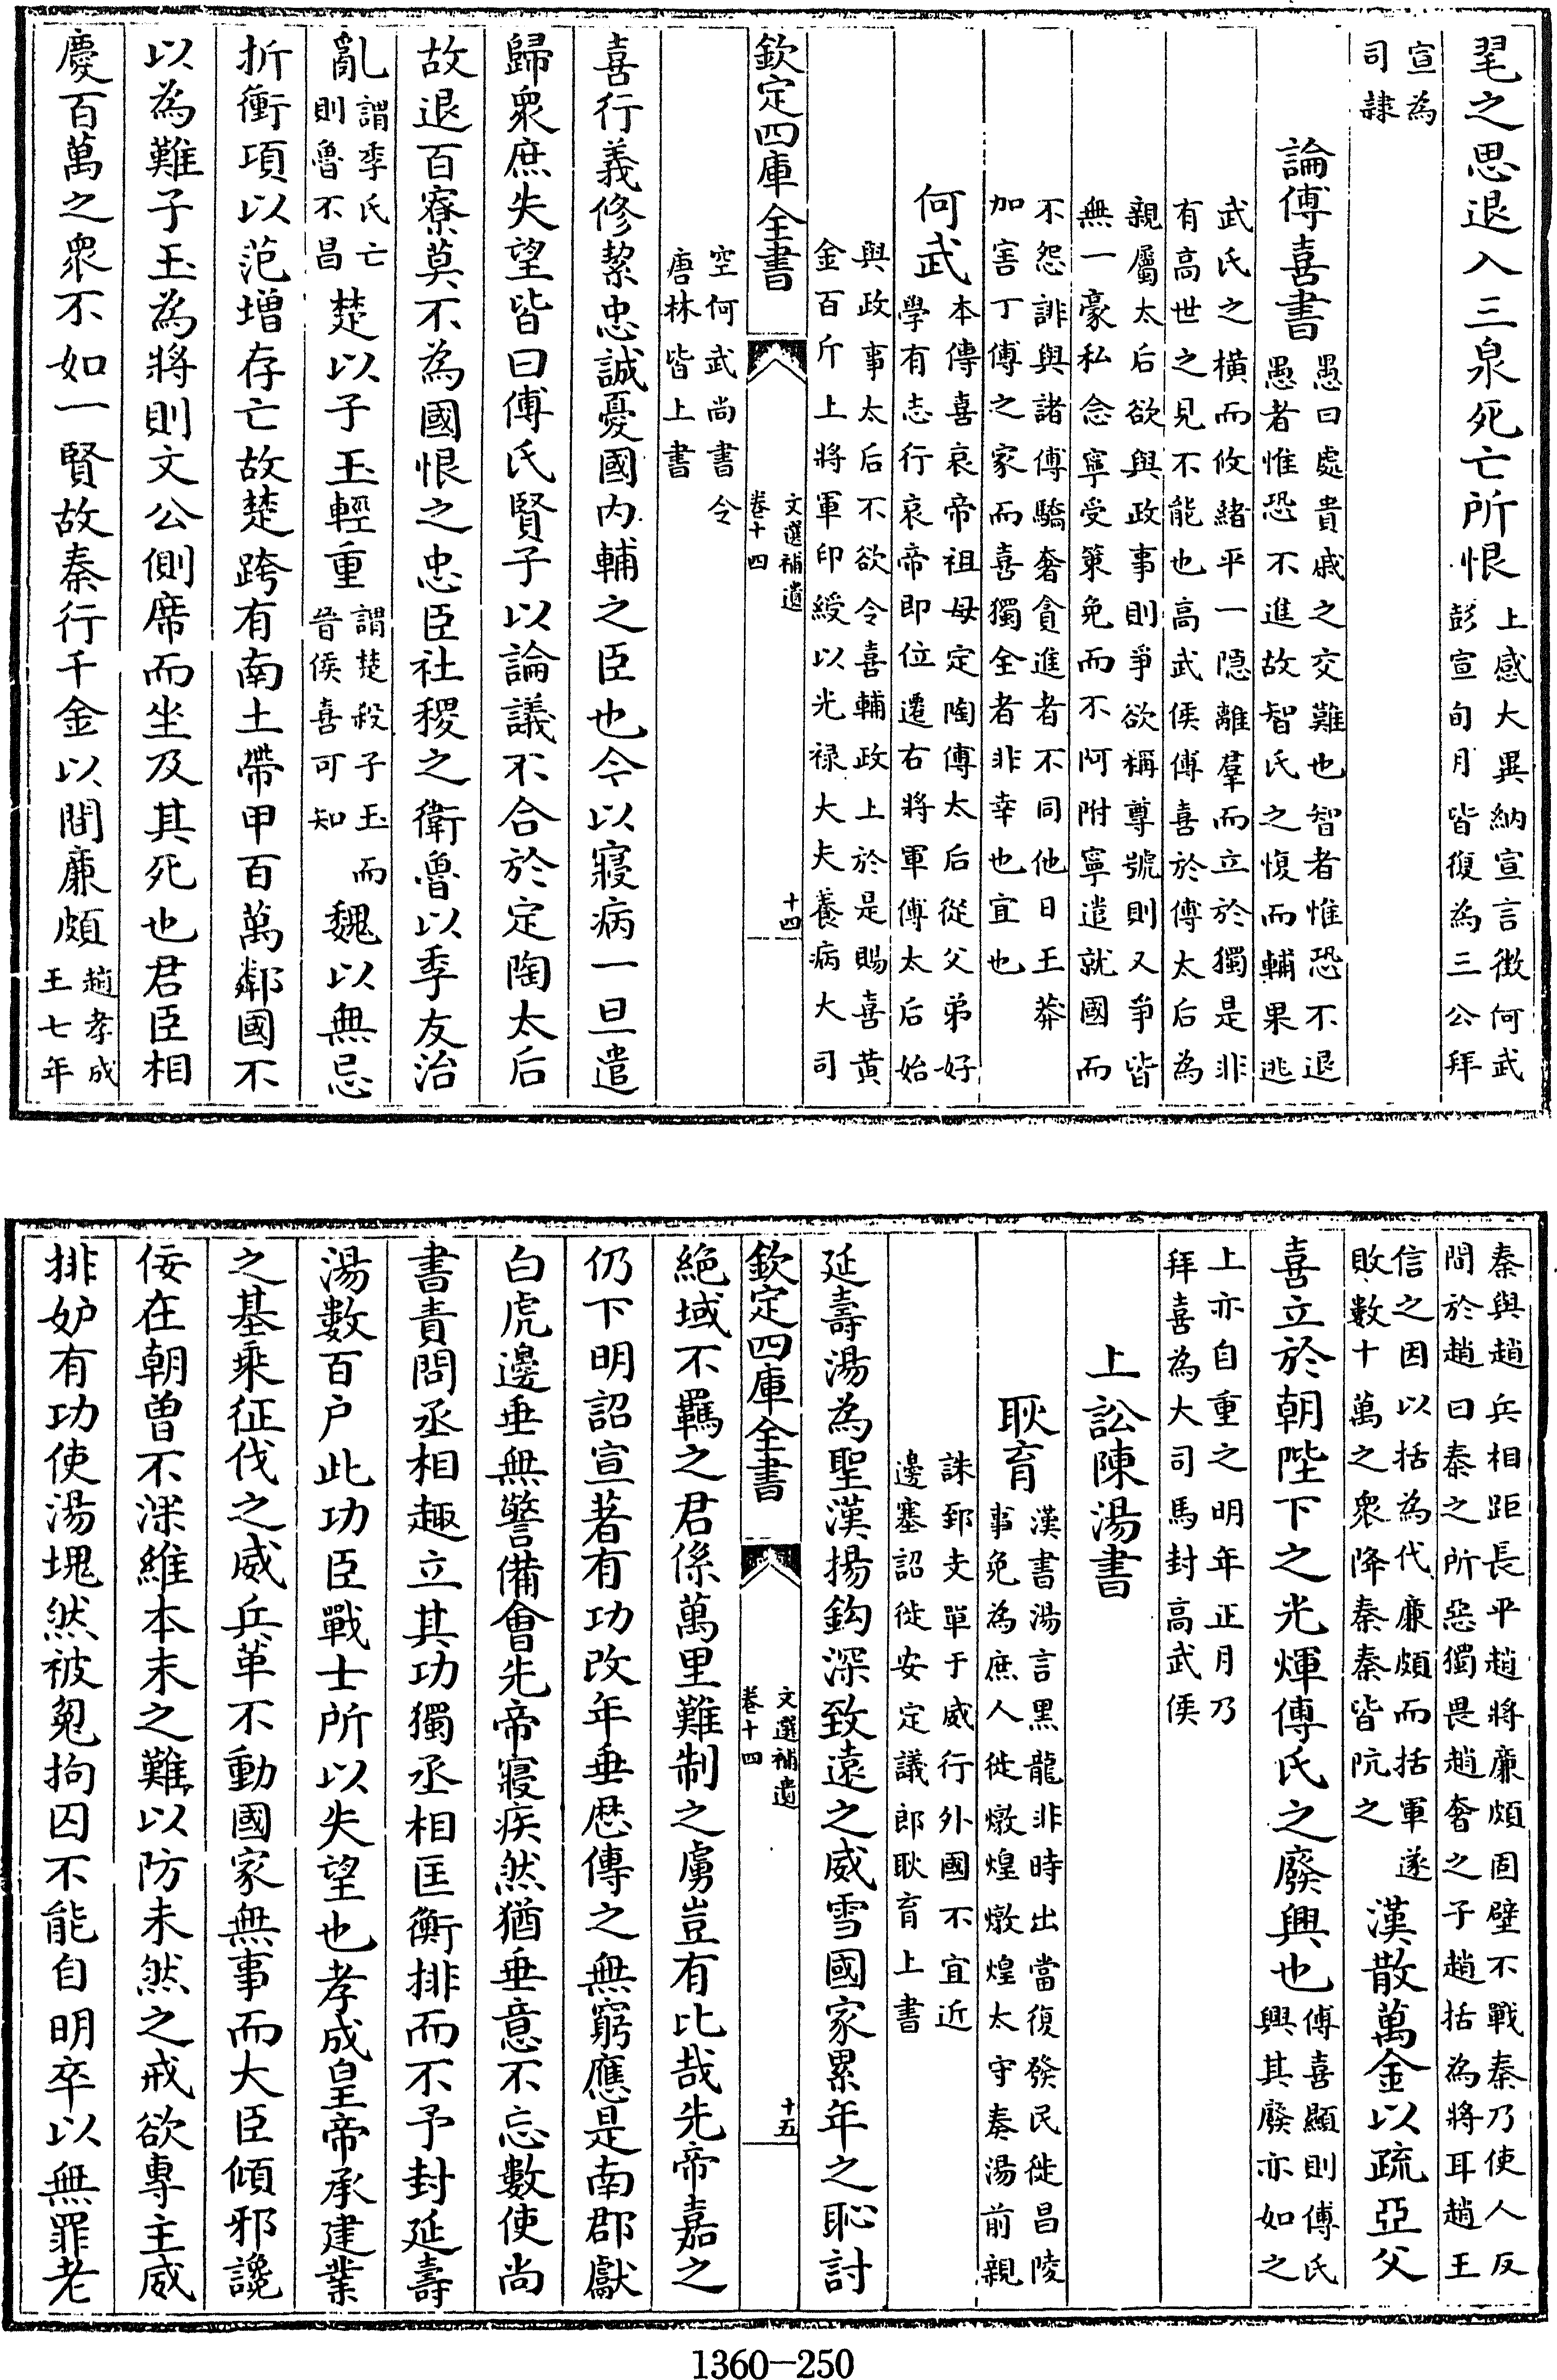 毣之思退入三泉死亡所恨上感大異納宣言徴何武
彭宣旬月皆復為三公拜
宣為
司隸
論傅喜書愚曰處貴戚之交難也智者惟恐不退
愚者惟恐不進故智氏之愎而輔果逃
武氏之橫而攸緒平一隠離羣而立於獨是非
有高世之見不能也高武侯傅喜於傅太后為
親屬太后欲與政事則爭欲稱尊號則又爭皆
無一豪私念寧受策免而不阿附寧遣就國而
不怨誹與諸傅驕奢貪進者不同他日王莽
加害丁傅之家而喜獨全者非幸也宜也
何武本傳喜哀帝祖母定陶傅太后從父弟好
學有志行哀帝即位遷右將軍傅太后始
與政事太后不欲令喜輔政上於是賜喜黄
金百斤上將軍印綬以光禄大夫養病大司
欽定四庫全書
文選補遺
卷十四
十四
空何武尚書令
唐林皆上書
喜行義修絜忠誠憂國内輔之臣也今以寢病一旦遣
歸衆庶失望皆曰傅氏賢子以論議不合於定陶太后
故退百寮莫不為國恨之忠臣社稷之衛魯以季友治
亂謂季氏亡
則魯不昌楚以子玉輕重謂楚殺子玉而
晉侯喜可知魏以無忌
折衝項以范增存亡故楚跨有南土帶甲百萬鄰國不
以為難子玉為將則文公側席而坐及其死也君臣相
慶百萬之衆不如一賢故秦行千金以間廉頗趙孝成
王七年
秦與趙兵相距長平趙將廉頗固壁不戰秦乃使人反
間於趙曰秦之所惡獨畏趙奢之子趙括為將耳趙王
信之因以括為代廉頗而括軍遂
敗數十萬之衆降秦秦皆阬之漢散萬金以疏亞父
喜立於朝陛下之光煇傅氏之廢興也傅喜顯則傅氏
興其廢亦如之
上亦自重之明年正月乃
拜喜為大司馬封高武侯
上訟陳湯書
耿育漢書湯言黑龍非時出當復發民徙昌陵
事免為庶人徙燉煌燉煌太守奏湯前親
誅郅支單于威行外國不宜近
邊塞詔徙安定議郎耿育上書
延壽湯為聖漢揚鈎深致遠之威雪國家累年之恥討
欽定四庫全書
文選補遺
卷十四
十五
絶域不羈之君係萬里難制之虜豈有比哉先帝嘉之
仍下明詔宣著有功改年垂厯傳之無窮應是南郡獻
白虎邊垂無警備會先帝寢疾然猶垂意不忘數使尚
書責問丞相趣立其功獨丞相匡衡排而不予封延壽
湯數百户此功臣戰士所以失望也孝成皇帝承建業
之基乘征伐之威兵革不動國家無事而大臣傾邪讒
佞在朝曾不深維本末之難以防未然之戒欲專主威
排妒有功使湯塊然被冤拘囚不能自明卒以無罪老
1360-250